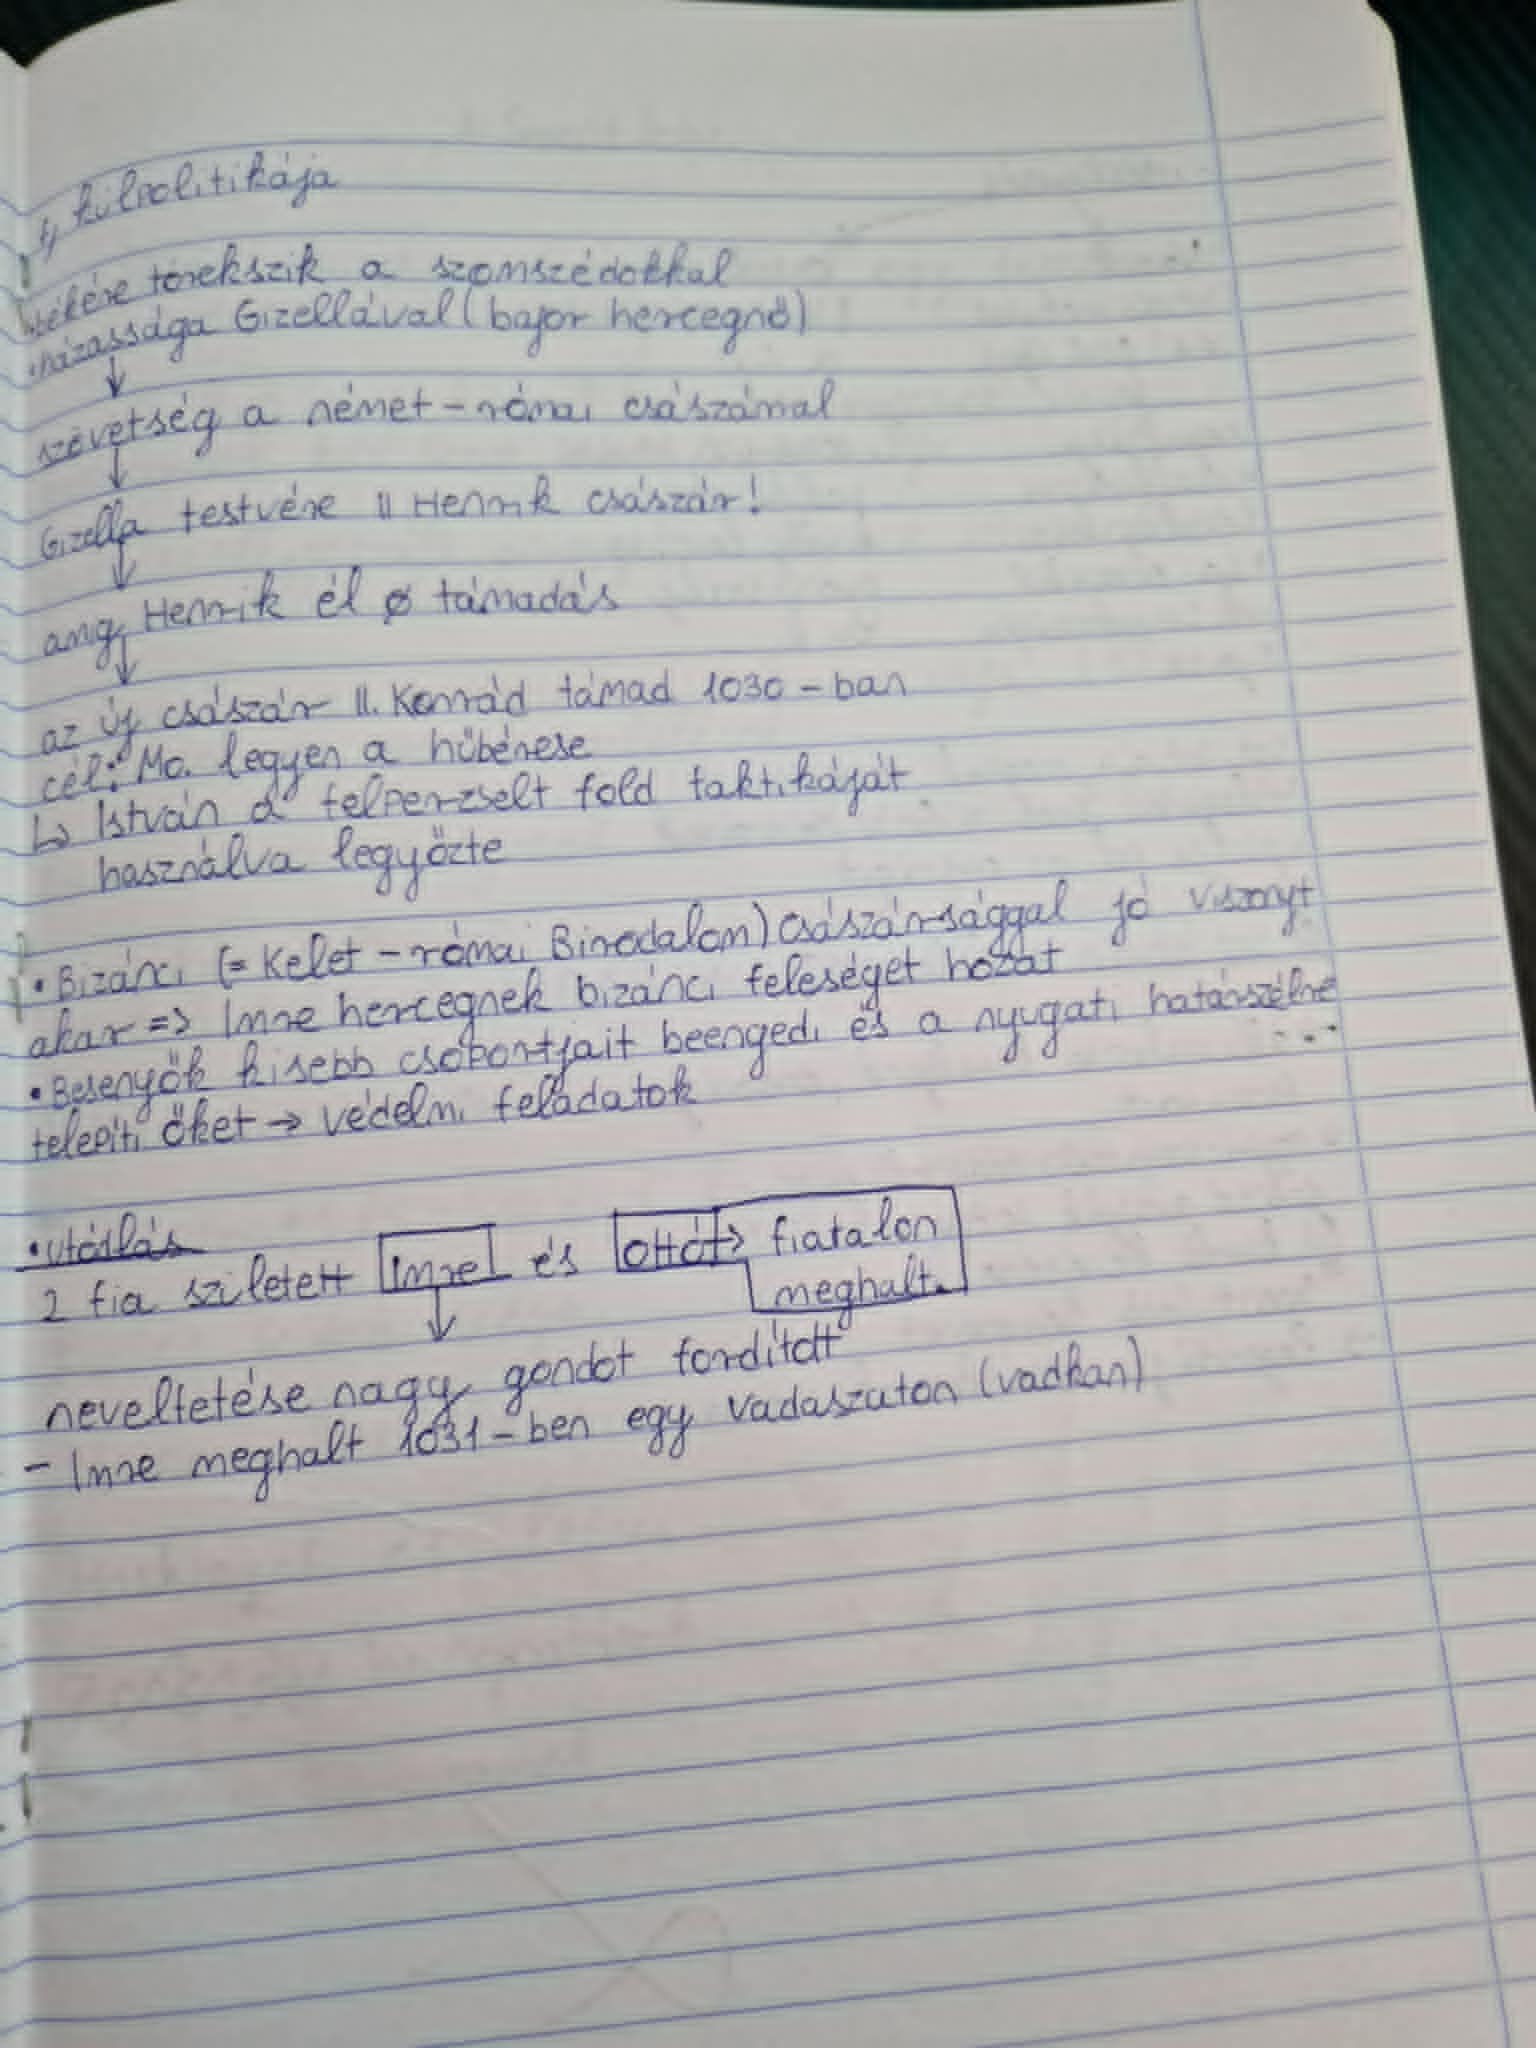 f, külpolitikája
békére törekszik a szomszédokkal
•házassága Gizellával (bajor hercegnő)
↓
szövetség a német-római császárral
↓
Gizella testvére II Henrik császár!
↓
amíg Henrik él ø támadás
↓
az új császár II. Konrád támad 1030-ban
cél: Mo. legyen a hűbérese
↳ István a felperzselt föld taktikáját
használva legyőzte
• Bizánci (= Kelet-római Birodalom) császársággal jó viszonyt
akar => Imre hercegnek bizánci feleséget hozat
• Besenyők kisebb csoportjait beengedi és a nyugati határszélre
telepíti őket → védelmi feladatok
• Utódlás
2 fia született Imre és Ottó → fiatalon
meghalt.
↓
neveltetése nagy gondot fordított
- Imre meghalt 1031-ben egy vadászaton (vadkan)